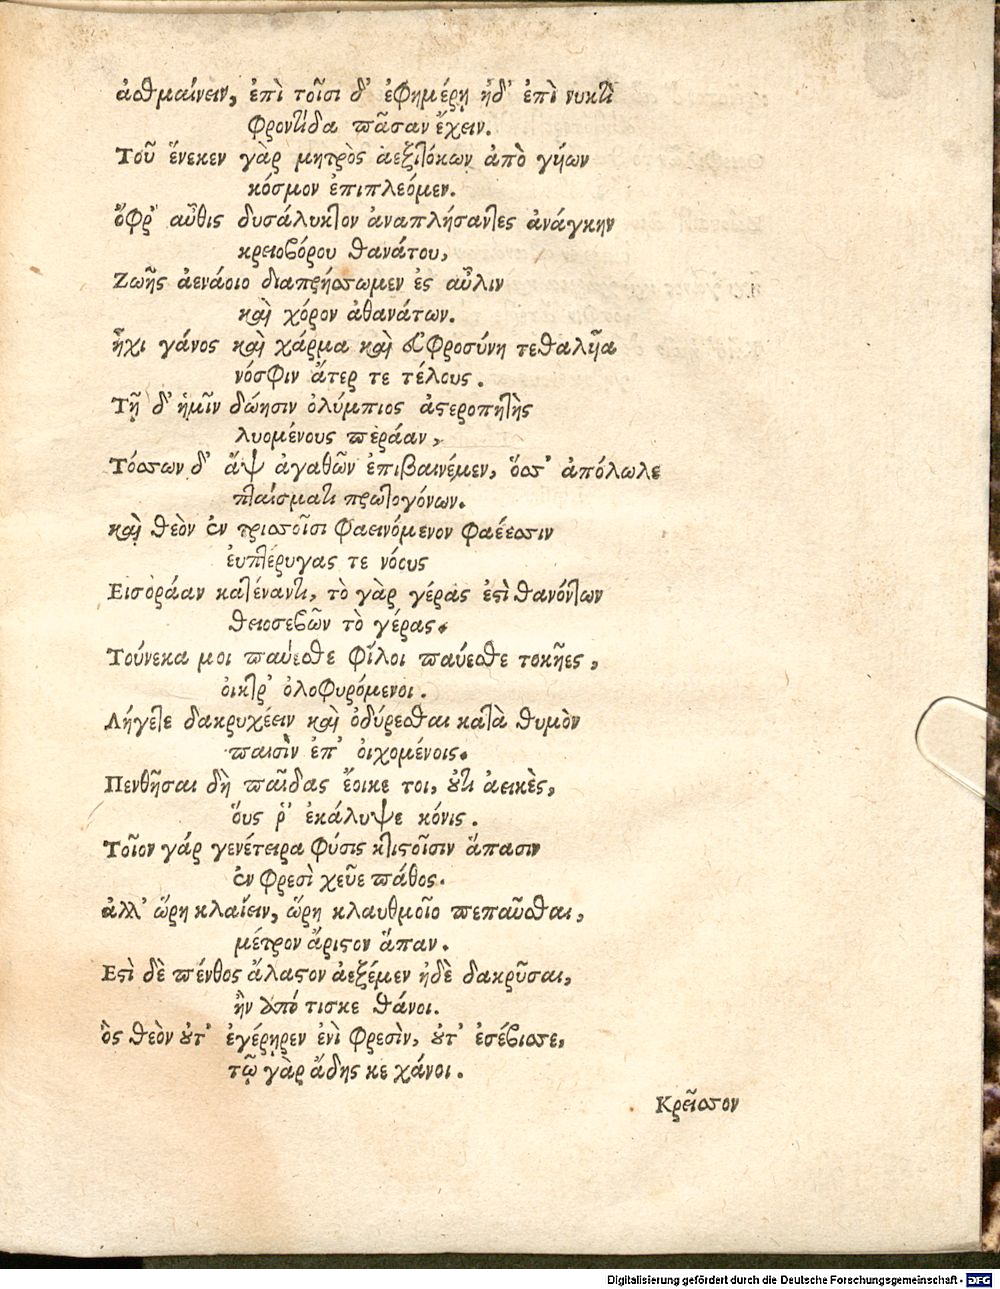 ἀσθμαίνειν, ἐπὶ τοῖσι δ' ἐφημέρη ἠδ' ἐπὶ νυκτὶ
φροντίδα πᾶσαν ἔχειν.
Τοῦ ἕνεκεν γὰρ μητρὸς ἀεξιτόκων ἀπὸ γήων
κόσμον ἐπιπλεόμεν.
ὄφρ' αὖθις δυσάλυκτον ἀναπλήσαντες ἀνάγκην
κρειοβόρου θανάτου,
Ζωῆς ἀενάοιο διαπρήσσωμεν ἐς αὖλιν
καὶ χόρον ἀθανάτων.
ἧχι γάνος καὶ χάρμα καὶ εὐφροσύνη τεθαλῆα
νόσφιν ἄτερ τε τέλους.
Τῇ δ' ἡμῖν δώησιν ὀλύμπιος ἀστεροπητὴς
λυομένους περάαν,
Τόσσων δ' ἂψ ἀγαθῶν ἐπιβαινέμεν, ὅσσ' ἀπόλωλε
πταίσματι πρωτογόνων.
καὶ θεὸν ἐν τρισσοῖσι φαεινόμενον φαέεσσιν
ἐυπτέρυγας τε νόους
Εισοράαν κατέναντι, τὸ γὰρ γέρας ἐστὶ θανόντων
θειοσεβῶν τὸ γέρας.
Τούνεκα μοι παύεσθε φίλοι παύεσθε τοκῆες,
οἰκτρ' ὀλοφυρόμενοι.
Λήγετε δακρυχέειν καὶ ὀδύρεσθαι κατὰ θυμὸν
παισὶν ἐπ' οἰχομένοις.
Πενθῆσαι δὴ παῖδας ἔοικε τοι, οὔτι ἀεικὲς,
ὅυς ῥ' ἐκάλυψε κόνις.
Τοῖον γάρ γενέτειρα φύσις κτιστοῖσιν ἅπασιν
ἐν φρεσὶ χεῦε πάθος.
ἀλλ' ὥρη κλαίειν, ὥρη κλαυθμοῖο πεπαῦσθαι,
μέτρον ἄριστον ἅπαν.
Εστὶ δὲ πένθος ἄλαστον ἀεξέμεν ἠδὲ δακρῦσαι,
ἢν ὑπό τισκε θάνοι.
ὃς θεὸν οὔτ' ἐγέρηρεν ἐνὶ φρεσὶν, οὔτ' ἐσέβισσε,
τῷ γὰρ ἅδης κε χάνοι.
Κρεῖσσον
Digitalisierung gefördert durch die Deutsche Forschungsgemeinschaft - DFG